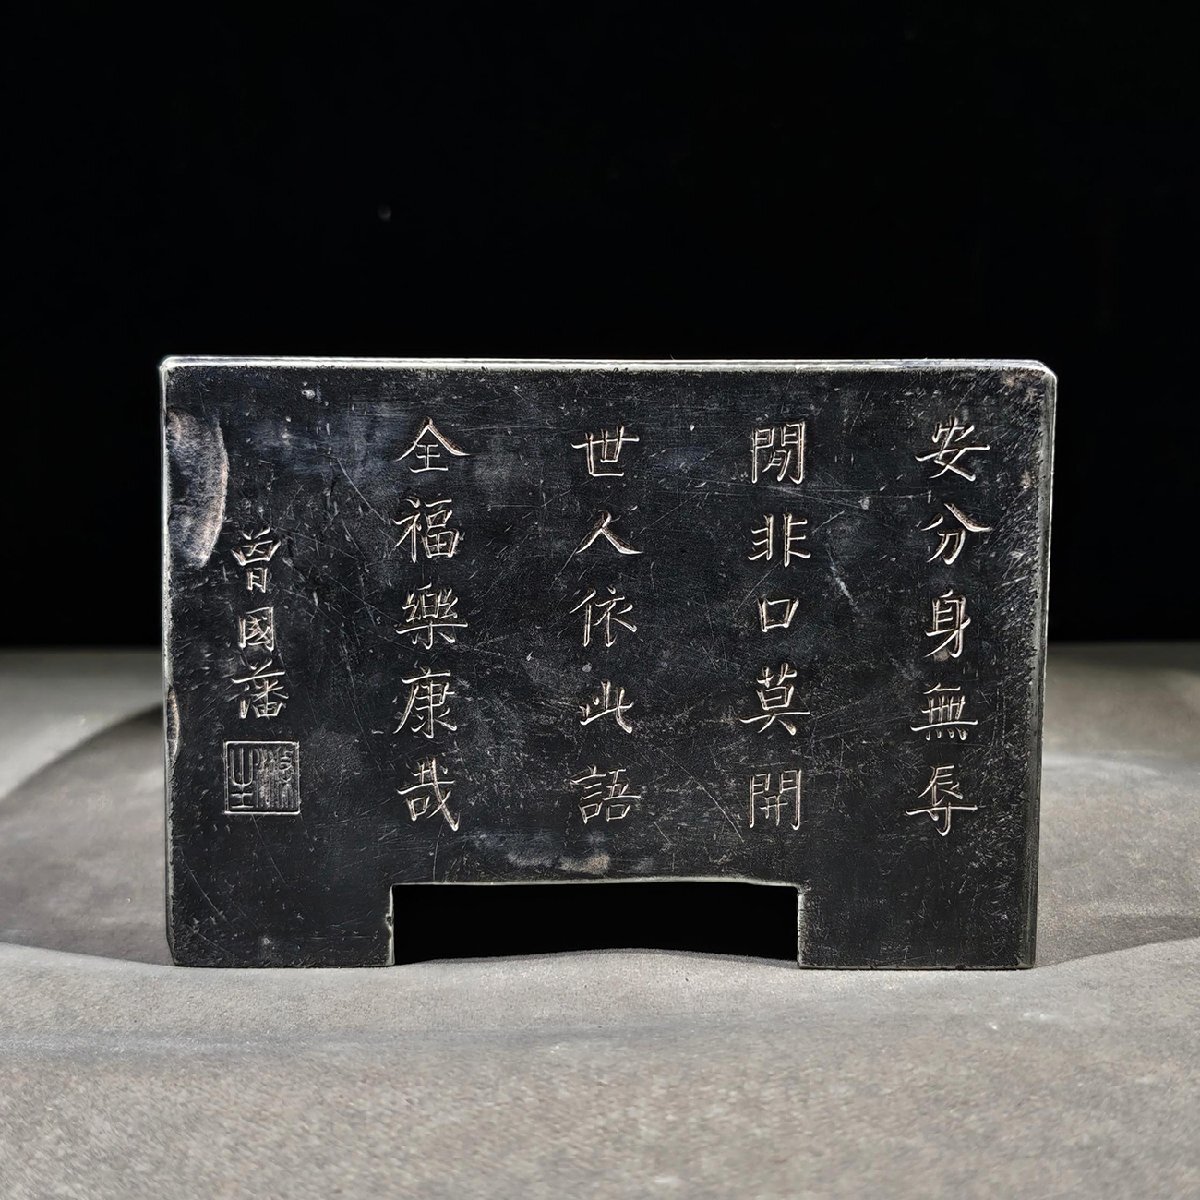 安分身無辱
閒非口莫開
世人依此語
全福樂康哉
曾國藩